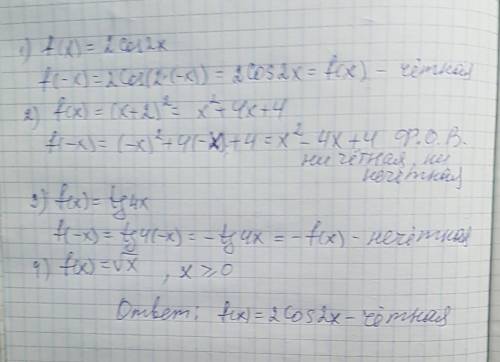 1) f(x) = 2Cos2x
f(-x) = 2Cos(2·(-x)) = 2Cos2x = f(x) - чётная
2) f(x) = (x+2)² = x²+4x+4
f(-x) = (-x)²+4(-x)+4 = x²-4x+4 Ф.О.В.
ни чётная, ни
нечётная
3) f(x) = tg4x
f(-x) = tg4(-x) = -tg4x = -f(x) - нечётная
4) f(x) = √x , x ⩾ 0
Ответ: f(x) = 2Cos2x - чётная